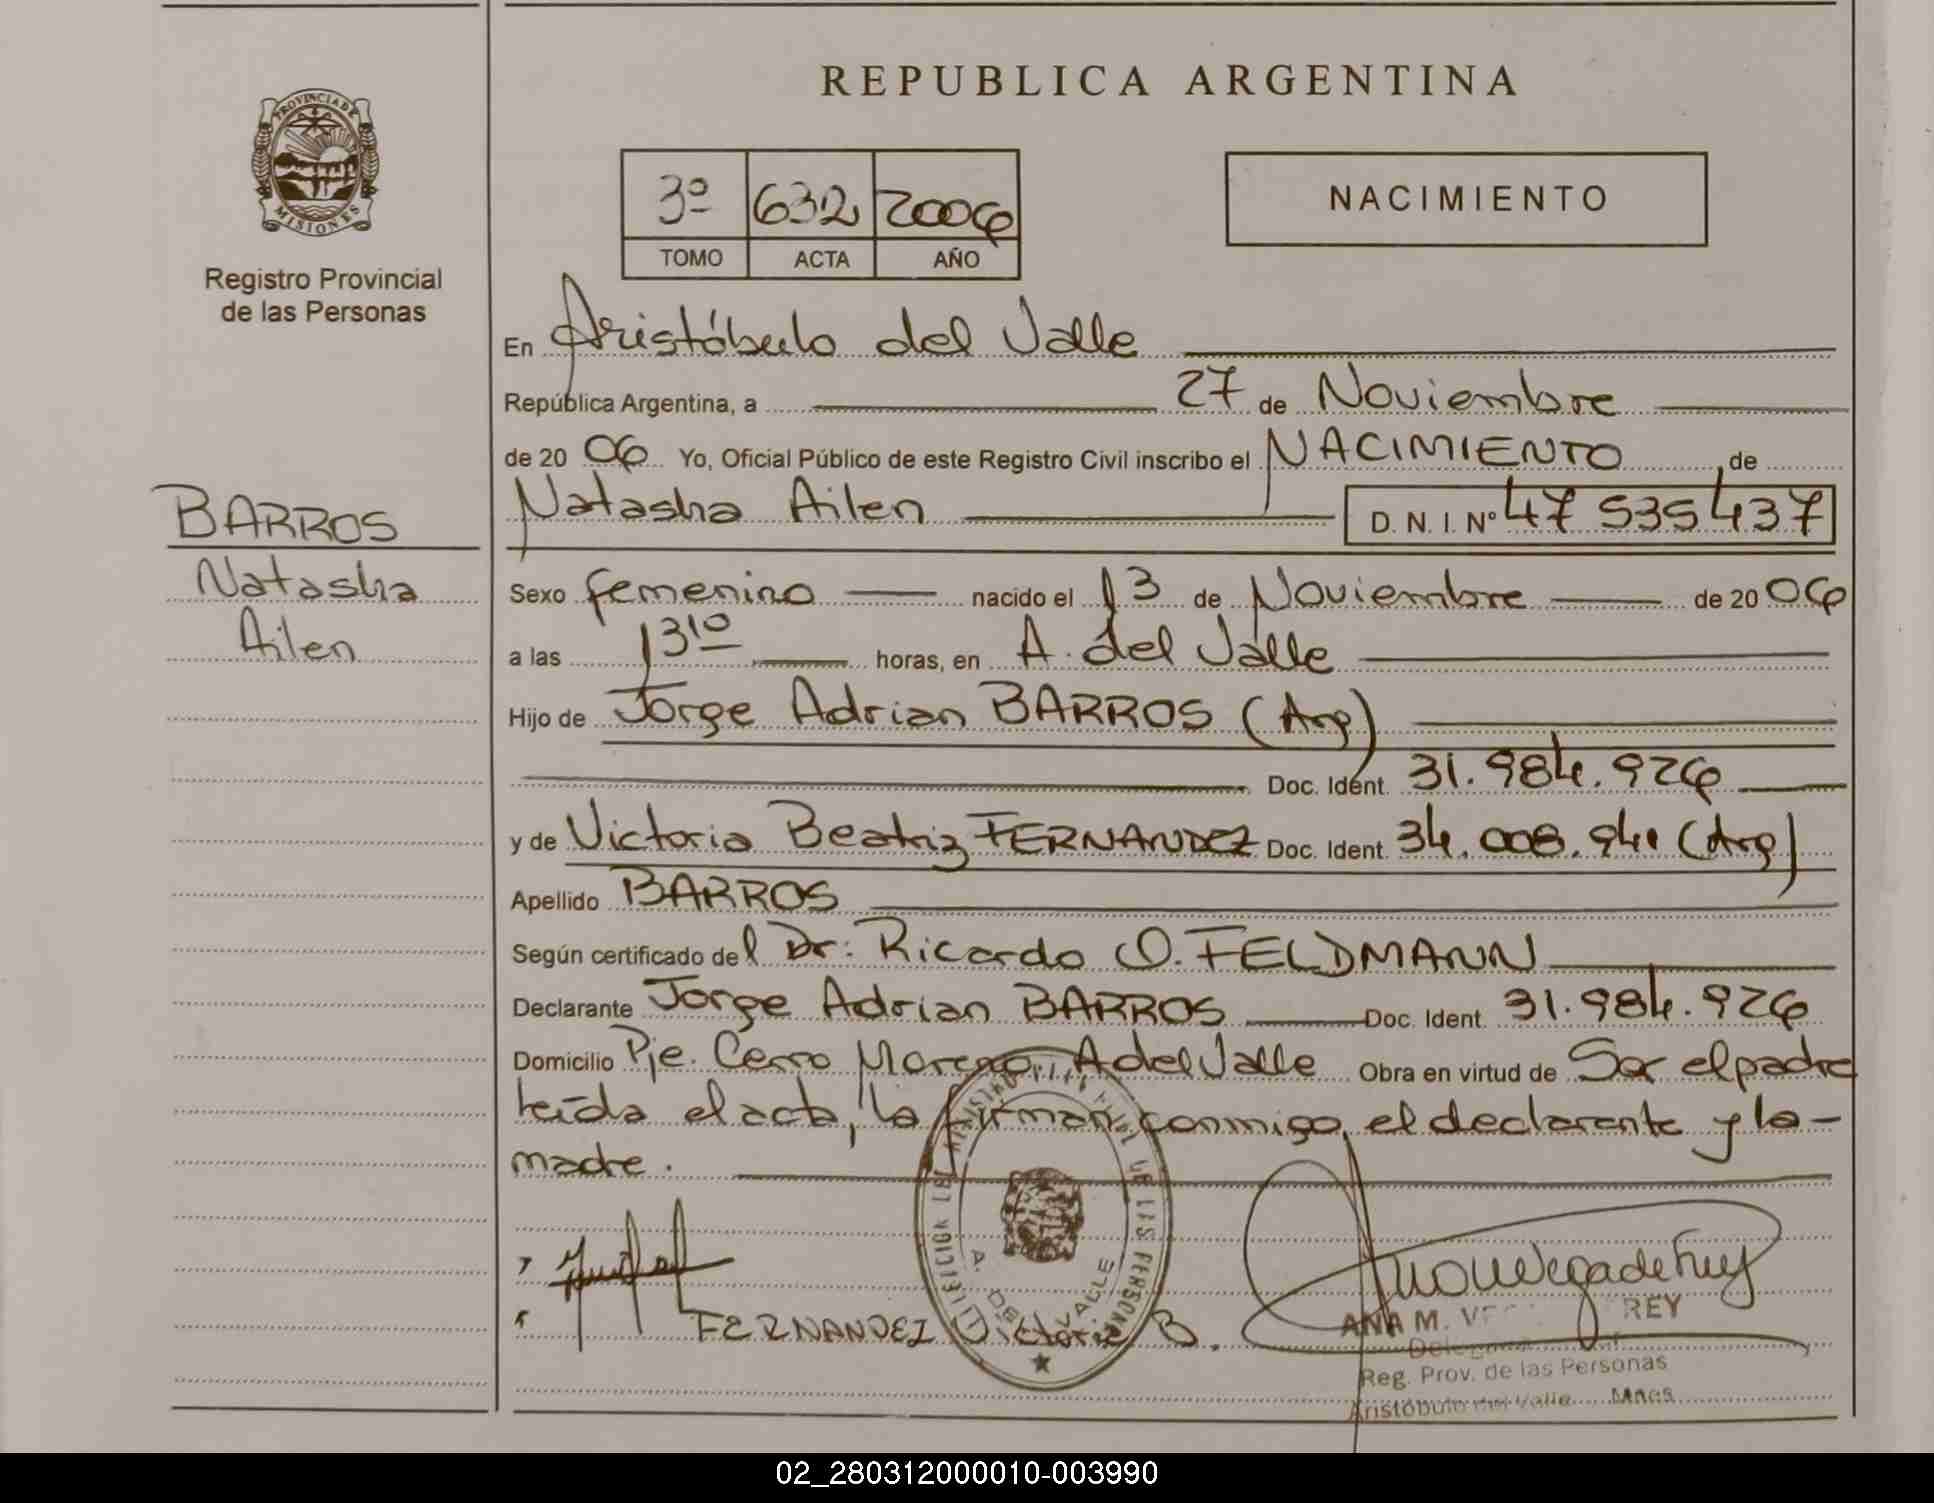 REPUBLICA ARGENTINA
PROVINCIA DE
MISIONES
Registro Provincial
de las Personas
3º 632 2006
TOMO ACTA AÑO
NACIMIENTO
En Aristóbulo del Valle
República Argentina, a 27 de Noviembre
de 20 06 Yo, Oficial Público de este Registro Civil inscribo el NACIMIENTO, de
Natasha Ailen D. N. I. Nº 47 535437
BARROS
Natasha
Ailen
Sexo femenino nacido el 13 de Noviembre de 20 06
a las 13 10 horas, en A. del Valle
Hijo de Jorge Adrian BARROS (Arg)
Doc. Ident. 31.984.926
y de Victoria Beatriz FERNANDEZ Doc. Ident. 34.008.941 (Arg)
Apellido BARROS
Según certificado del Dr: Ricardo O. FELDMANN
Declarante Jorge Adrian BARROS Doc. Ident. 31.984.926
Domicilio Pje. Cerro Moreno, A del Valle Obra en virtud de Ser el padre
leída el acta, la firman conmigo, el declarante y la-
madre.
FERNANDEZ Victoria B.
A. VALLE
ANA M. REY
Reg. Prov. de las Personas
Aristóbulo del Valle Mnes
02_280312000010-003990